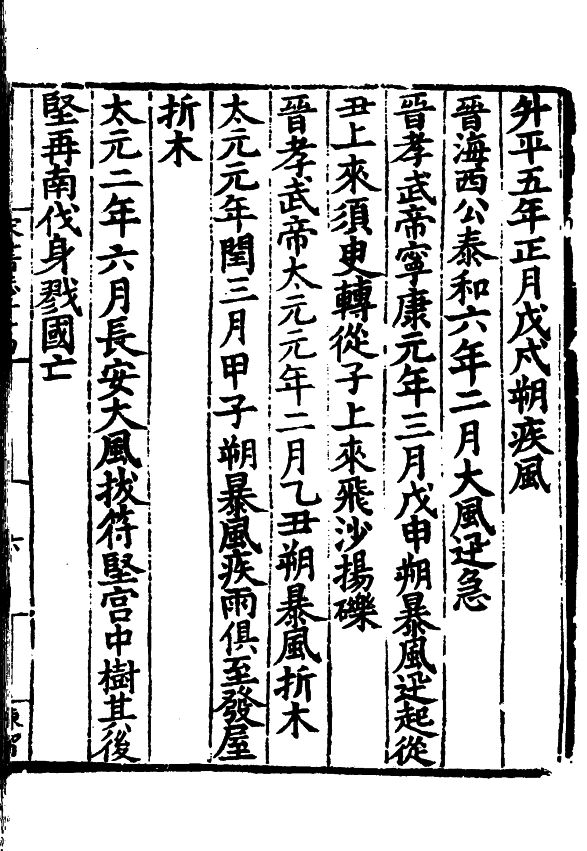 升平五年正月戊戌朔疾風
晉海西公泰和六年二月大風迅急
晉孝武帝寧康元年三月戊申朔暴風迅起從
丑上來須臾轉從子上來飛沙揚礫
晉孝武帝太元元年二月乙丑朔暴風折木
太元元年閏三月甲子朔暴風疾雨俱至發屋
折木
太元二年六月長安大風拔符堅宫中樹其後
堅再南伐身戮國亡